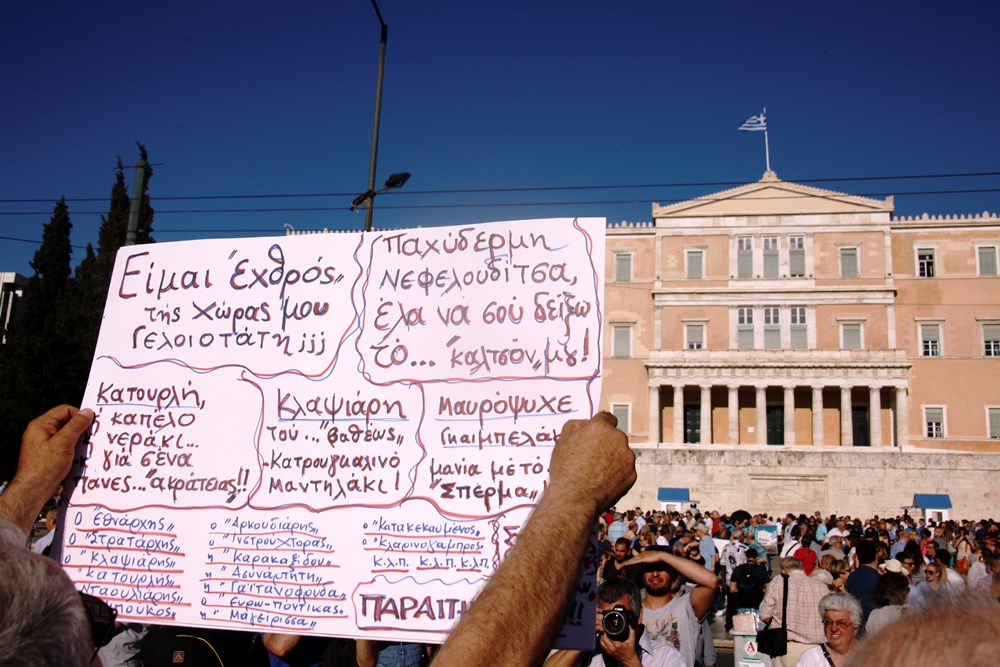 Είμαι "Εχθρός„
τής Χώρας μου
Γελοιοτάτη ¡¡¡
Παχύδερμη
Νεφελουδίτσα,
έλα νά σού δείξω
τό... "καλτσόν„ μ８!
Κατουρλή,
ή καπέλο
νεράκι...
γιά σένα
πάνες... "ακράτειας„!!
Κλαψιάρη
τού... "βαθέως„
-Κατρουγκαλινό
μαντηλάκι!
Μαυρόψυχε
Γκαιμπελάκι
μανία μέ τό.
"Σπέρμα„
ο "Εθνάρχης„
ο "Στρατάρχης„
ο "Κλαψιάρης„
ο "κατουρλής„
Νταουλιάρης„
Μπούκος„
ο "Αρκουδιάρης„
ο "Ινστρούχτορας„
η "Καρακαξίδου„
η "Ασυνάρτητη„
η "Γαϊτανοφρύδα„
ο "Ευρω-πόντικας„
η "Μαγείρισσα„
ο "Κατακεκαυμένος„
ο "Κλαρινογαμπρός„
κ.λ.π. κ.λ.π. κ.λ.π
A